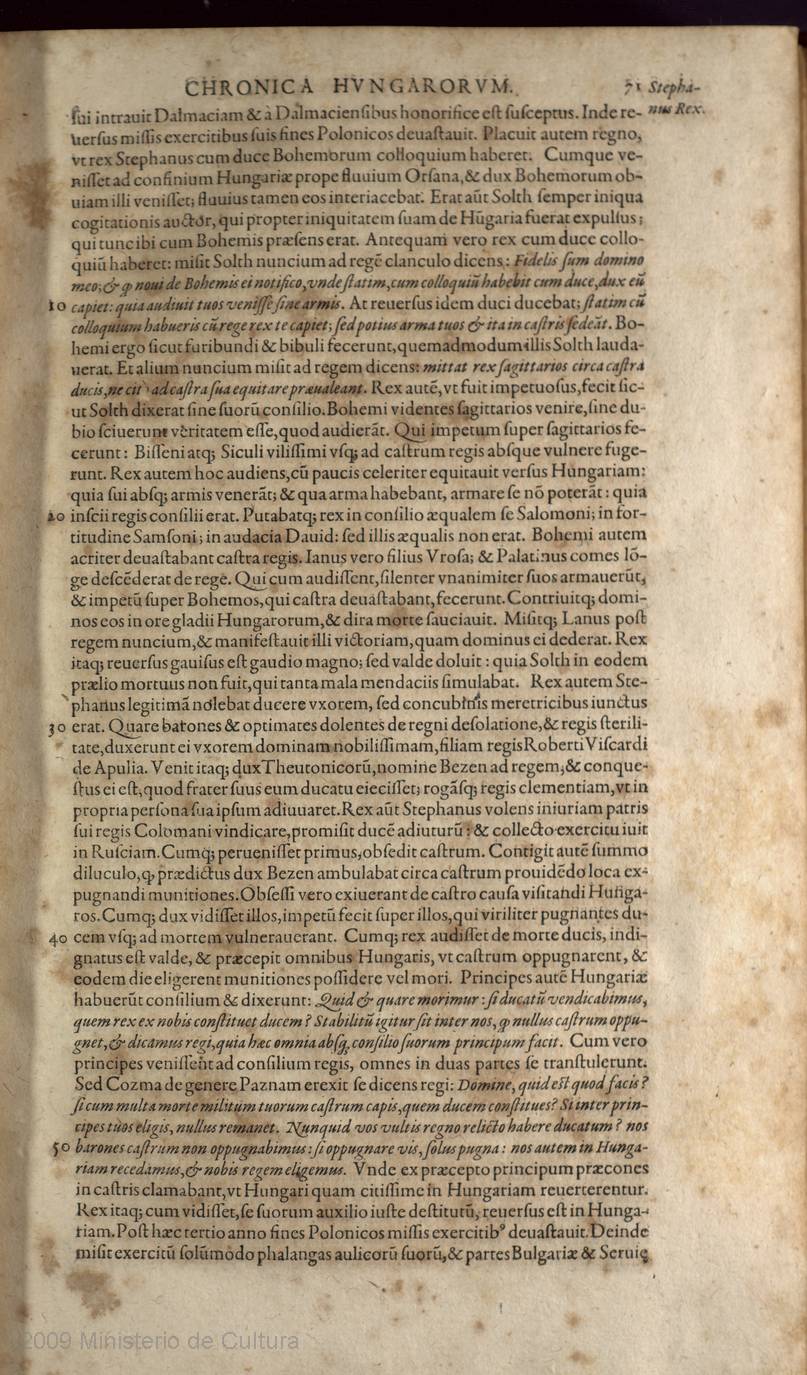 CHRONICA HVNGARORVM. 71 Stepha-
nus Rex.
ſui intrauit Dalmaciam & à Dalmacienſibus honorifice eſt ſuſceptus. Inde re-
uerſus miſsis exercitibus ſuis fines Polonicos deuaſtauit. Placuit autem regno,
vt rex Stephanus cum duce Bohemorum colloquium haberet. Cumque ve-
niſſet ad confinium Hungariæ prope fluuium Orſana, & dux Bohemorum ob-
uiam illi veniſſet; fluuius tamen eos interiacebat. Erat aũt Solth ſemper iniqua
cogitationis auctor, qui propter iniquitatem ſuam de Hũgaria fuerat expulſus;
qui tunc ibi cum Bohemis præſens erat. Antequam vero rex cum duce collo-
quiũ haberet: miſit Solth nuncium ad regẽ clanculo dicens: Fidelis ſum domino
meo; & ꝙ noui de Bohemis ei notifico, vnde ſtatim, cum colloquiũ habebit cum duce, dux eũ
10 capiet: quia audiuit tuos veniſſe ſine armis. At reuerſus idem duci ducebat; ſtatim cũ
colloquium habueris cũ rege rex te capiet; ſed potius arma tuos & ita in caſtris ſedeãt. Bo-
hemi ergo ſicut furibundi & bibuli fecerunt, quemadmodum illis Solth lauda-
uerat. Et alium nuncium miſit ad regem dicens: mittat rex ſagittarios circa caſtra
ducis, ne cit ad caſtra ſua equitare præualeant. Rex autẽ, vt fuit impetuoſus, fecit ſic-
ut Solth dixerat ſine ſuorũ conſilio. Bohemi videntes ſagittarios venire, ſine du-
bio ſciuerunt veritatem eſſe, quod audierãt. Qui impetum ſuper ſagittarios fe-
cerunt: Biſſeni atq; Siculi viliſſimi vſq; ad caſtrum regis abſque vulnere fuge-
runt. Rex autem hoc audiens, cũ paucis celeriter equitauit verſus Hungariam:
quia ſui abſq; armis venerãt; & qua arma habebant, armare ſe nõ poterãt: quia
20 inſcii regis conſilii erat. Putabatq; rex in conſilio æqualem ſe Salomoni; in for-
titudine Samſoni; in audacia Dauid: ſed illis æqualis non erat. Bohemi autem
acriter deuaſtabant caſtra regis. Ianus vero filius Vroſa; & Palatinus comes lõ-
ge deſcẽderat de rege. Qui cum audiſſent, ſilenter vnanimiter ſuos armauerũt,
& impetũ ſuper Bohemos, qui caſtra deuaſtabant, fecerunt. Contriuitq; domi-
nos eos in ore gladii Hungarorum, & dira morte ſauciauit. Miſitq; Lanus poſt
regem nuncium, & manifeſtauit illi victoriam, quam dominus ei dederat. Rex
itaq; reuerſus gauiſus eſt gaudio magno; ſed valde doluit: quia Solth in eodem
prælio mortuus non fuit, qui tanta mala mendaciis ſimulabat. Rex autem Ste-
phanus legitimã nolebat ducere vxorem, ſed concubinis meretricibus iunctus
30 erat. Quare barones & optimates dolentes de regni deſolatione, & regis ſterili-
tate, duxerunt ei vxorem dominam nobiliſſimam, filiam regis Roberti Viſcardi
de Apulia. Venit itaq; dux Theutonicorũ, nomine Bezen ad regem, & conque-
ſtus ei eſt, quod frater ſuus eum ducatu eieciſſet; rogãſq; regis clementiam, vt in
propria perſona ſua ipſum adiuuaret. Rex aũt Stephanus volens iniuriam patris
ſui regis Colomani vindicare, promiſit ducẽ adiuturũ: & collecto exercitu iuit
in Ruſciam. Cumq; perueniſſet primus, obſedit caſtrum. Contigit autẽ ſummo
diluculo, ꝙ prædictus dux Bezen ambulabat circa caſtrum prouidẽdo loca ex-
pugnandi munitiones. Obſeſſi vero exiuerant de caſtro cauſa viſitandi Hunga-
ros. Cumq; dux vidiſſet illos, impetũ fecit ſuper illos, qui viriliter pugnantes du-
40 cem vſq; ad mortem vulnerauerant. Cumq; rex audiſſet de morte ducis, indi-
gnatus eſt valde, & præcepit omnibus Hungaris, vt caſtrum oppugnarent, &
eodem die eligerent munitiones poſſidere vel mori. Principes autẽ Hungariæ
habuerũt conſilium & dixerunt: Quid & quare morimur: ſi ducatũ vendicabimus,
quem rex ex nobis conſtituet ducem? Stabilitũ igitur ſit inter nos, ꝙ nullus caſtrum oppu-
gnet, & dicamus regi, quia hæc omnia abſq; conſilio ſuorum principum facit. Cum vero
principes veniſſent ad conſilium regis, omnes in duas partes ſe tranſtulerunt.
Sed Cozma de genere Paznam erexit ſe dicens regi: Domine, quid eſt quod facis?
ſi cum multa morte militum tuorum caſtrum capis, quem ducem conſtitues? Si inter prin-
cipes tuos eligis, nullus remanet. Nunquid vos vultis regno relicto habere ducatum? nos
50 barones caſtrum non oppugnabimus: ſi oppugnare vis, ſolus pugna: nos autem in Hunga-
riam recedamus, & nobis regem eligemus. Vnde ex præcepto principum præcones
in caſtris clamabant, vt Hungari quam citiſſime in Hungariam reuerterentur.
Rex itaq; cum vidiſſet, ſe ſuorum auxilio iuſte deſtitutũ, reuerſus eſt in Hunga-
riam. Poſt hæc tertio anno fines Polonicos miſſis exercitibꝰ deuaſtauit. Deinde
miſit exercitũ ſolũmodo phalangas aulicorũ ſuorũ, & partes Bulgariæ & Seruię
2009 Ministerio de Cultura